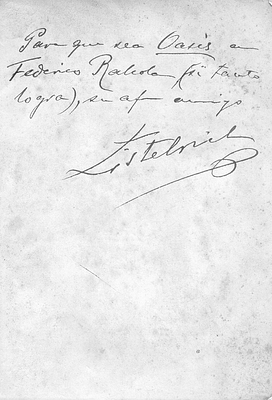 Para que sea Oasis a
Federico Rahola (si tanto
logra), su af amigo